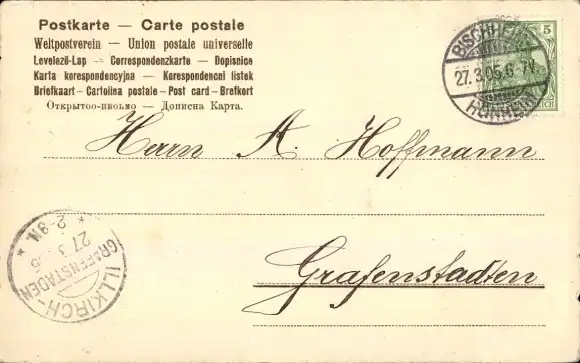 Postkarte — Carte postale
Weltpostverein — Union postale universelle
Levelező-Lap — Correspondenzkarte — Dopisnice
Karta korespondencyjna — Korespondencni listek
Briefkaart — Cartolina postale — Post card — Brefkort
Открытое-письмо — Дописна Карта.
BISCHHEIM
27.3.05.6-7N.
HÖNHEIM
5
Herrn A. Hoffmann
Grafenstadten
ILLKIRCH-
(GRAFENSTADEN)
27 3
2-3N.